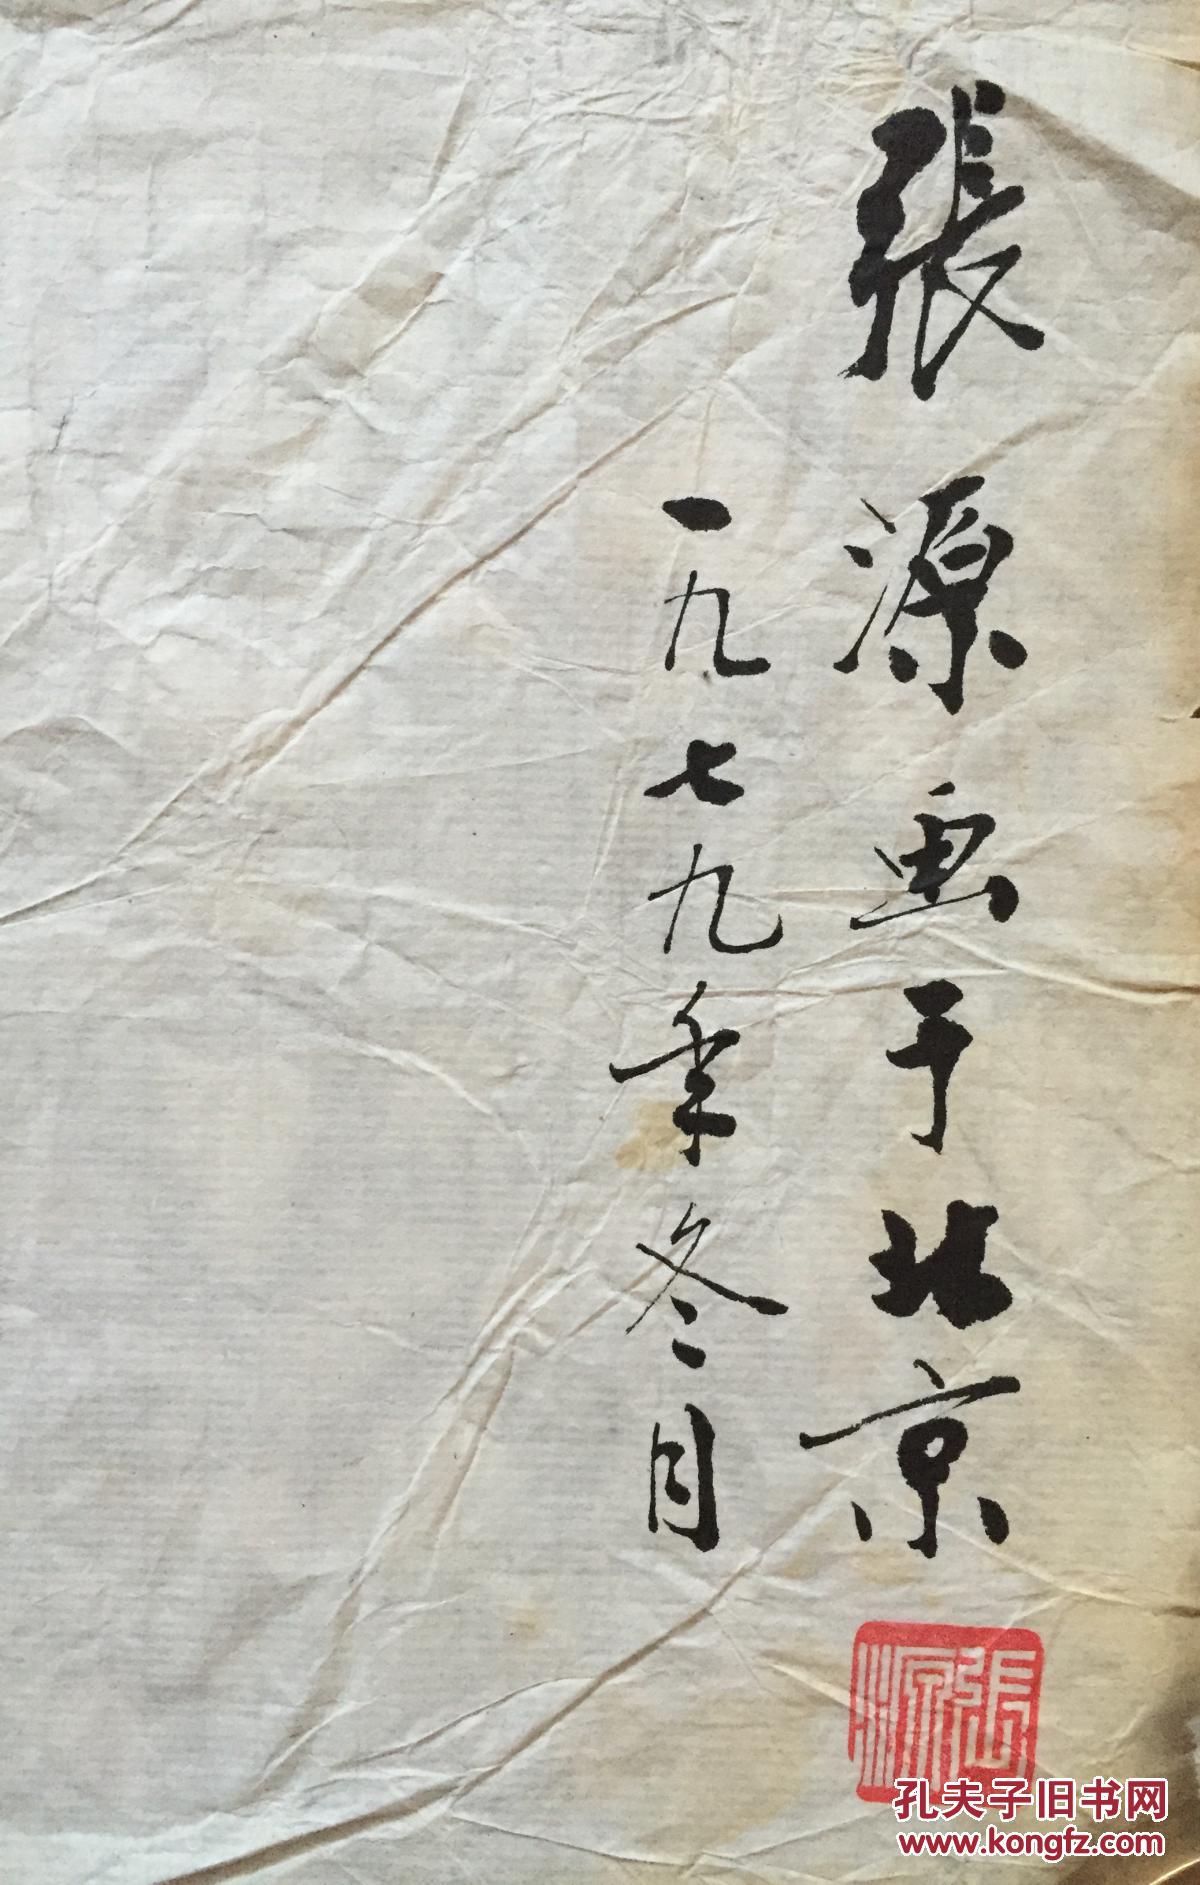 張源画于北京
一九七九年冬月
張源
孔夫子旧书网
www.kongfz.com